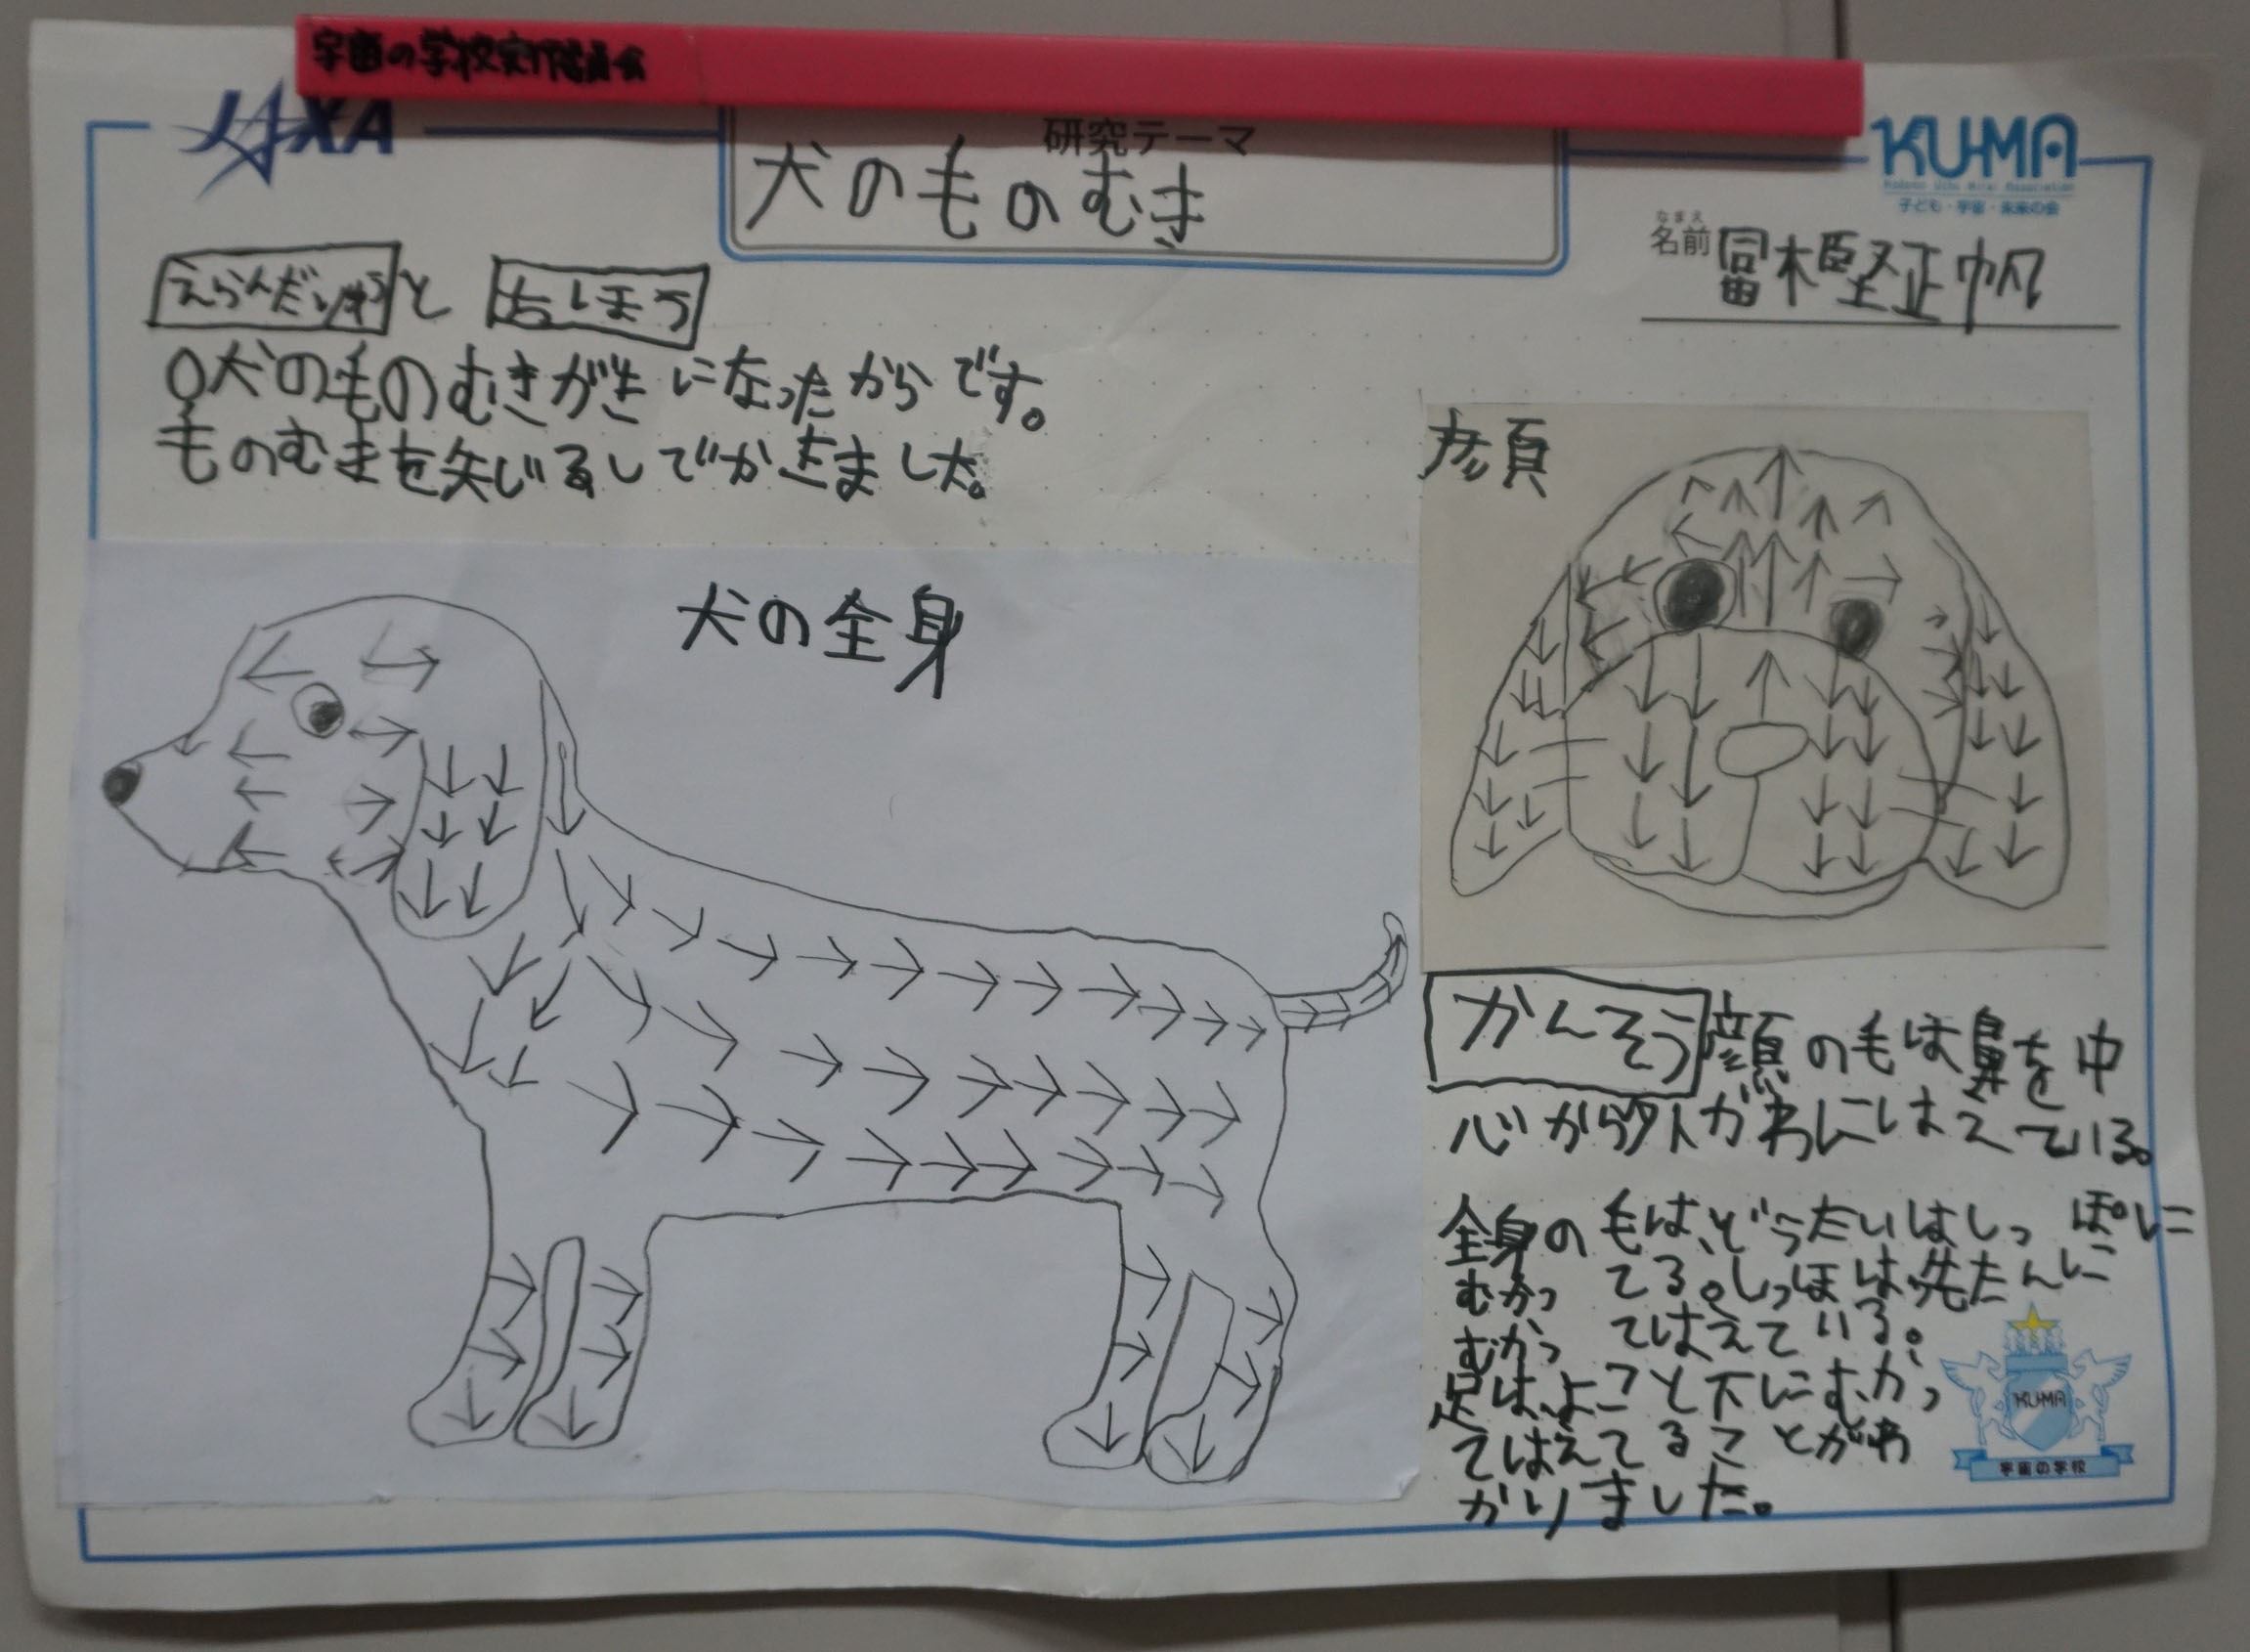 宇宙の学校実行委員会
JAXA
研究テーマ
犬のものむき
KU-MA
子ども・宇宙・未来の会
なまえ
名前 冨木堅正帆
えらんだりゆうと ちょしほう
犬のものむきがきになったからです。
ものむきを矢じるしでかきました。
犬の全身
顔
かんそう 顔の毛は鼻を中
心から外がわにはえている。
全身の毛は、どうたいはしっぽに
むかってる。しっぽは、先たんに
むかってはえている。
足は、よこと下にむかっ
てはえてることがわ
かりました。
KU-MA
宇宙の学校